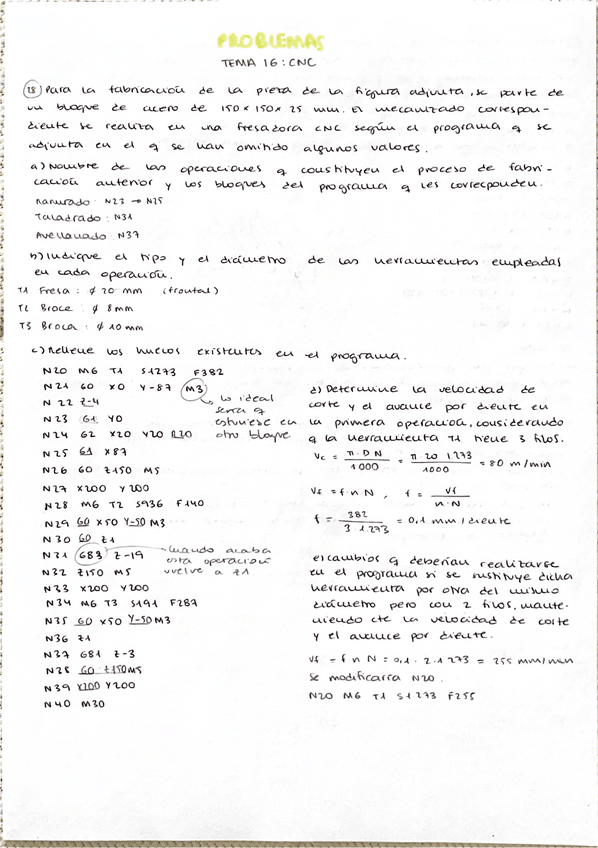 PROBLEMAS
TEMA 16: CNC
18) Para la fabricación de la pieza de la figura adjunta, se parte de
un bloque de acero de 150 x 150 x 25 mm. El mecanizado correspon-
diente se realiza en una fresadora CNC según el programa q se
adjunta en el q se han omitido algunos valores.
a) Nombre de las operaciones q constituyen el proceso de fabri-
cación anterior y los bloques del programa q les corresponden.
Ranurado: N23 → N25
Taladrado: N31
Avellanado: N37
b) Indique el tipo y el diámetro de las herramientas empleadas
en cada operación.
T1 Fresa: ϕ 20 mm (frontal)
T2 Broca: ϕ 8mm
T3 Broca: ϕ 10mm
c) Rellene los huecos existentes en el programa.
N20 M6 T1 S1273 F382
N21 G0 X0 Y-87 M3
N22 Z-4
N23 G1 Y0
N24 G2 X20 Y20 R20
N25 G1 X87
N26 G0 Z150 M5
N27 X200 Y200
N28 M6 T2 S936 F140
N29 G0 X50 Y-50 M3
N30 G0 Z1
N31 G83 Z-19
N32 Z150 M5
N33 X200 Y200
N34 M6 T3 S191 F287
N35 G0 X50 Y-50M3
N36 Z1
N37 G81 Z-3
N38 G0 Z150M5
N39 X200 Y200
N40 M30
lo ideal
seria q
estuviese en
otro bloque
cuando acaba
esta operación
vuelve a Z1
d) Determine la velocidad de
corte y el avance por diente en
la primera operación, considerando
q la herramienta T1 tiene 3 filos.
Vc = π·D·N / 1000 = π·20·1273 / 1000 = 80 m/min
Vf = f·n·N, f = Vf / n·N
f = 382 / 3·1.273 = 0,1 mm/diente
e) cambios q deberían realizarse
en el programa si se sustituye dicha
herramienta por otra del mismo
diámetro pero con 2 filos, mante-
niendo cte la velocidad de corte
y el avance por diente.
Vf = f·n·N = 0,1·2·1273 = 255 mm/min
Se modificaría N20.
N20 M6 T1 S1273 F255